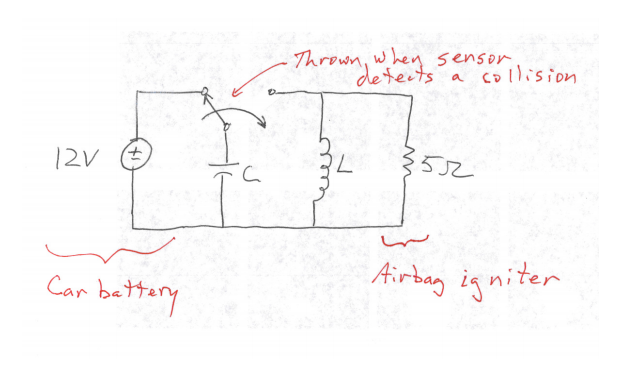 Thrown when sensor
detects a collision
12V
±
C
L
5Ω
Car battery
Airbag igniter